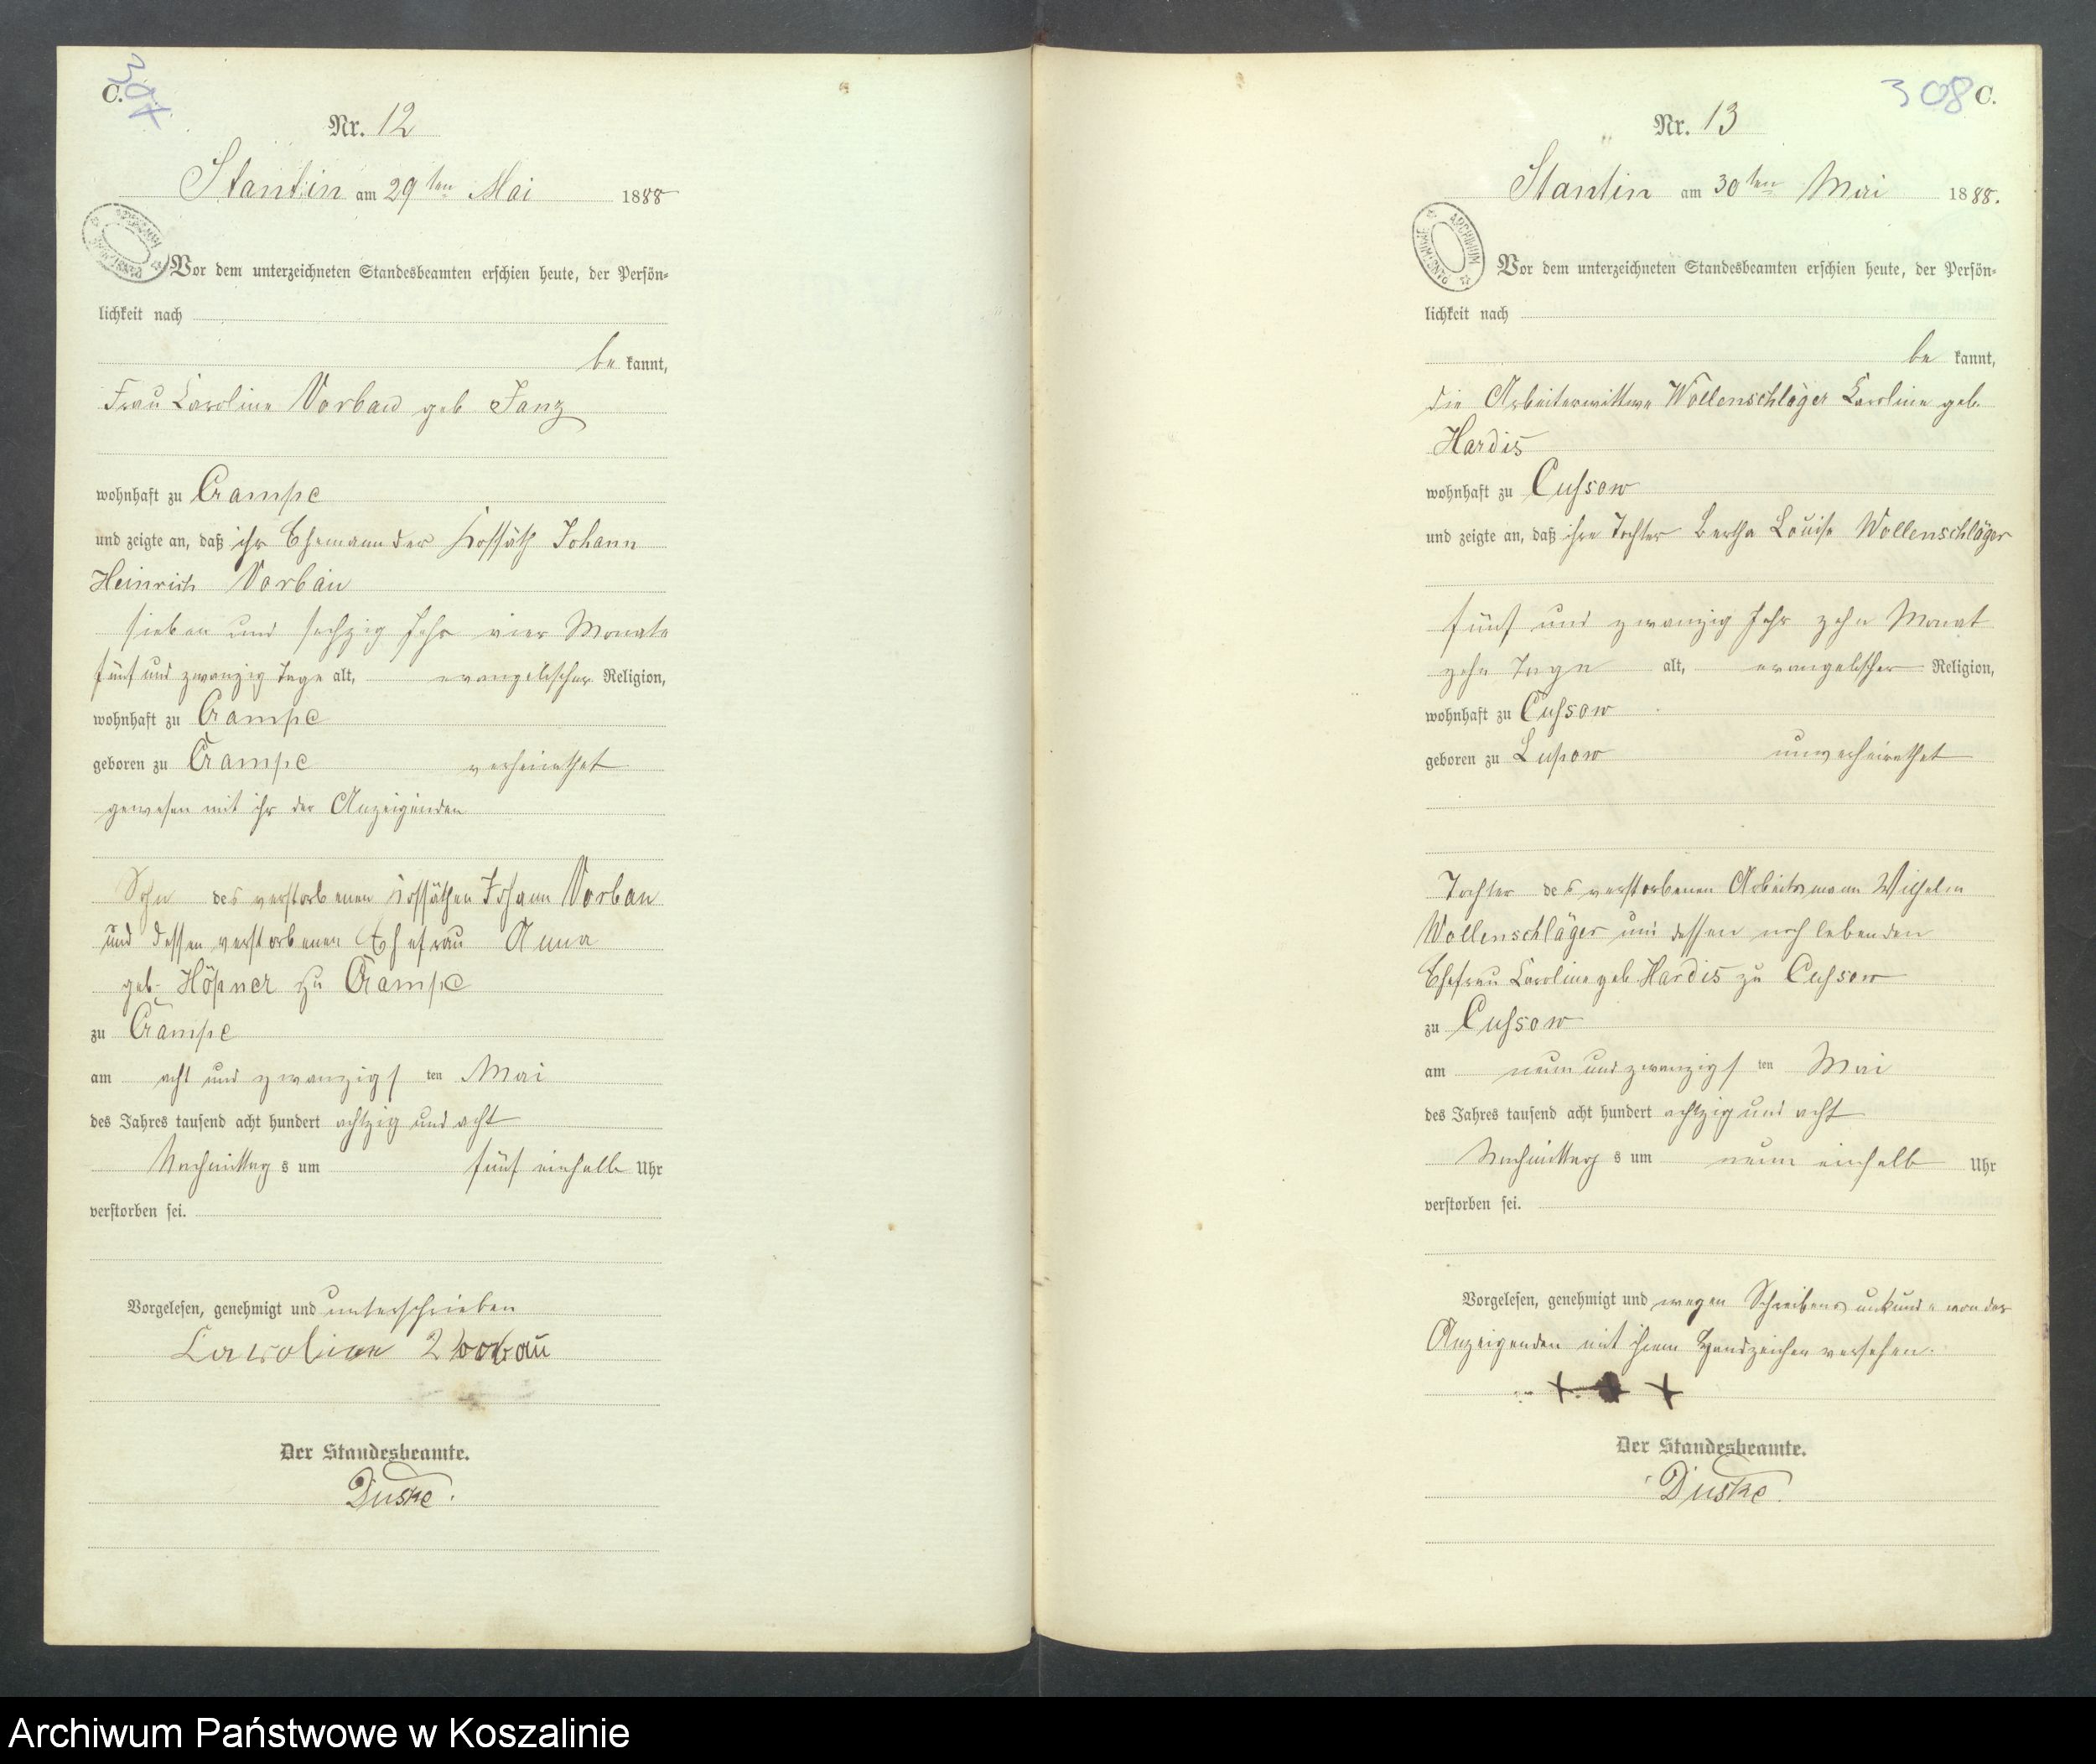 C.
307
Nr. 12
Stantin am 29ten Mai 1888
Vor dem unterzeichneten Standesbeamten erschien heute, der Persön-
lichkeit nach
be kannt,
Frau Caroline Vorbau geb Janz
wohnhaft zu Crampe
und zeigte an, daß ihr Ehemann der Kossäth Johann
Heinrich Vorbau
sieben und sechzig Jahr vier Monate
fünf und zwanzig Tage alt, evangelischer Religion,
wohnhaft zu Crampe
geboren zu Crampe verheirathet
gewesen mit ihr der Anzeigenden
Sohn des verstorbenen Kossäthen Johann Vorbau
und dessen verstorbenen Ehefrau Anna
geb. Höpner zu Crampe
zu Crampe
am acht und zwanzigs ten Mai
des Jahres tausend acht hundert achtzig und acht
Nachmittag s um fünf einhalb Uhr
verstorben sei.
Vorgelesen, genehmigt und unterschrieben
Caroline
Der Standesbeamte.
Duske.
308 C.
Nr. 13
Stantin am 30ten Mai 1888.
ARCHIWUM PAŃSTWOWE
Vor dem unterzeichneten Standesbeamten erschien heute, der Persön-
lichkeit nach
be kannt,
die Arbeiterwittwe Wollenschläger Karoline geb.
Hardis
wohnhaft zu Cussow
und zeigte an, daß ihre Tochter Bertha Louise Wollenschläger
fünf und zwanzig Jahr zehn Monat
zehn Tage alt, evangelischer Religion,
wohnhaft zu Cussow
geboren zu Lupow unverheirathet
Tochter des verstorbenen Arbeitsmann Wilhelm
Wollenschläger und dessen noch lebenden
Ehefrau Caroline geb Hardis zu Cussow
zu Cussow
am neun und zwanzigs ten Mai
des Jahres tausend acht hundert achtzig und acht
Nachmittag s um neun einhalb Uhr
verstorben sei.
Vorgelesen, genehmigt und wegen Schreibens unkunde von der
Anzeigenden mit ihrem Handzeichen versehen.
+ + +
Der Standesbeamte.
Duske.
Archiwum Państwowe w Koszalinie